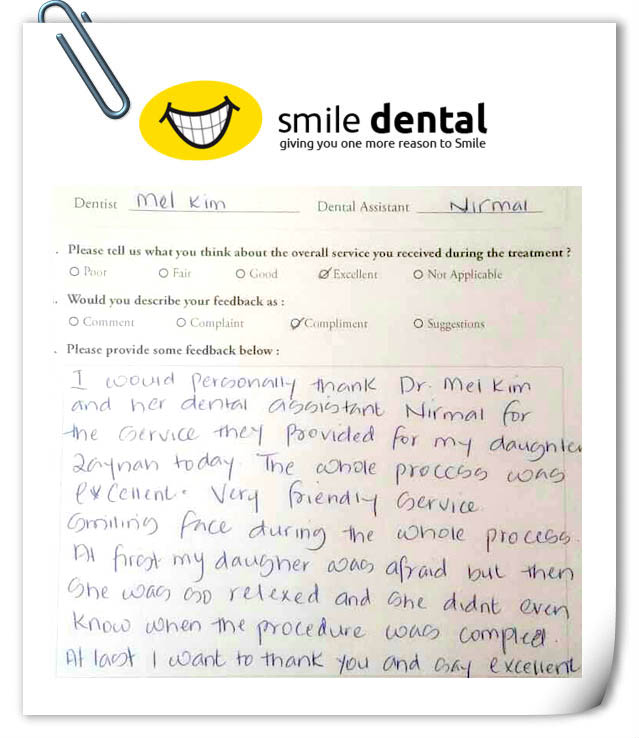 smile dental
giving you one more reason to Smile
Dentist Mel Kim Dental Assistant Nirmal
. Please tell us what you think about the overall service you received during the treatment ?
Poor Fair Good Excellent Not Applicable
. Would you describe your feedback as :
Comment Complaint Compliment Suggestions
. Please provide some feedback below :
I would Personally thank Dr. Mel Kim
and her dental assistant Nirmal for
the service they Provided for my daughter
Zaynah today. The whole proccess was
excellent. Very friendly service.
Smiling face during the whole process.
At first my daugher was afraid but then
She was so relexed and she didnt even
Know when the procedure was compleed.
At last I want to thank you and say excellent